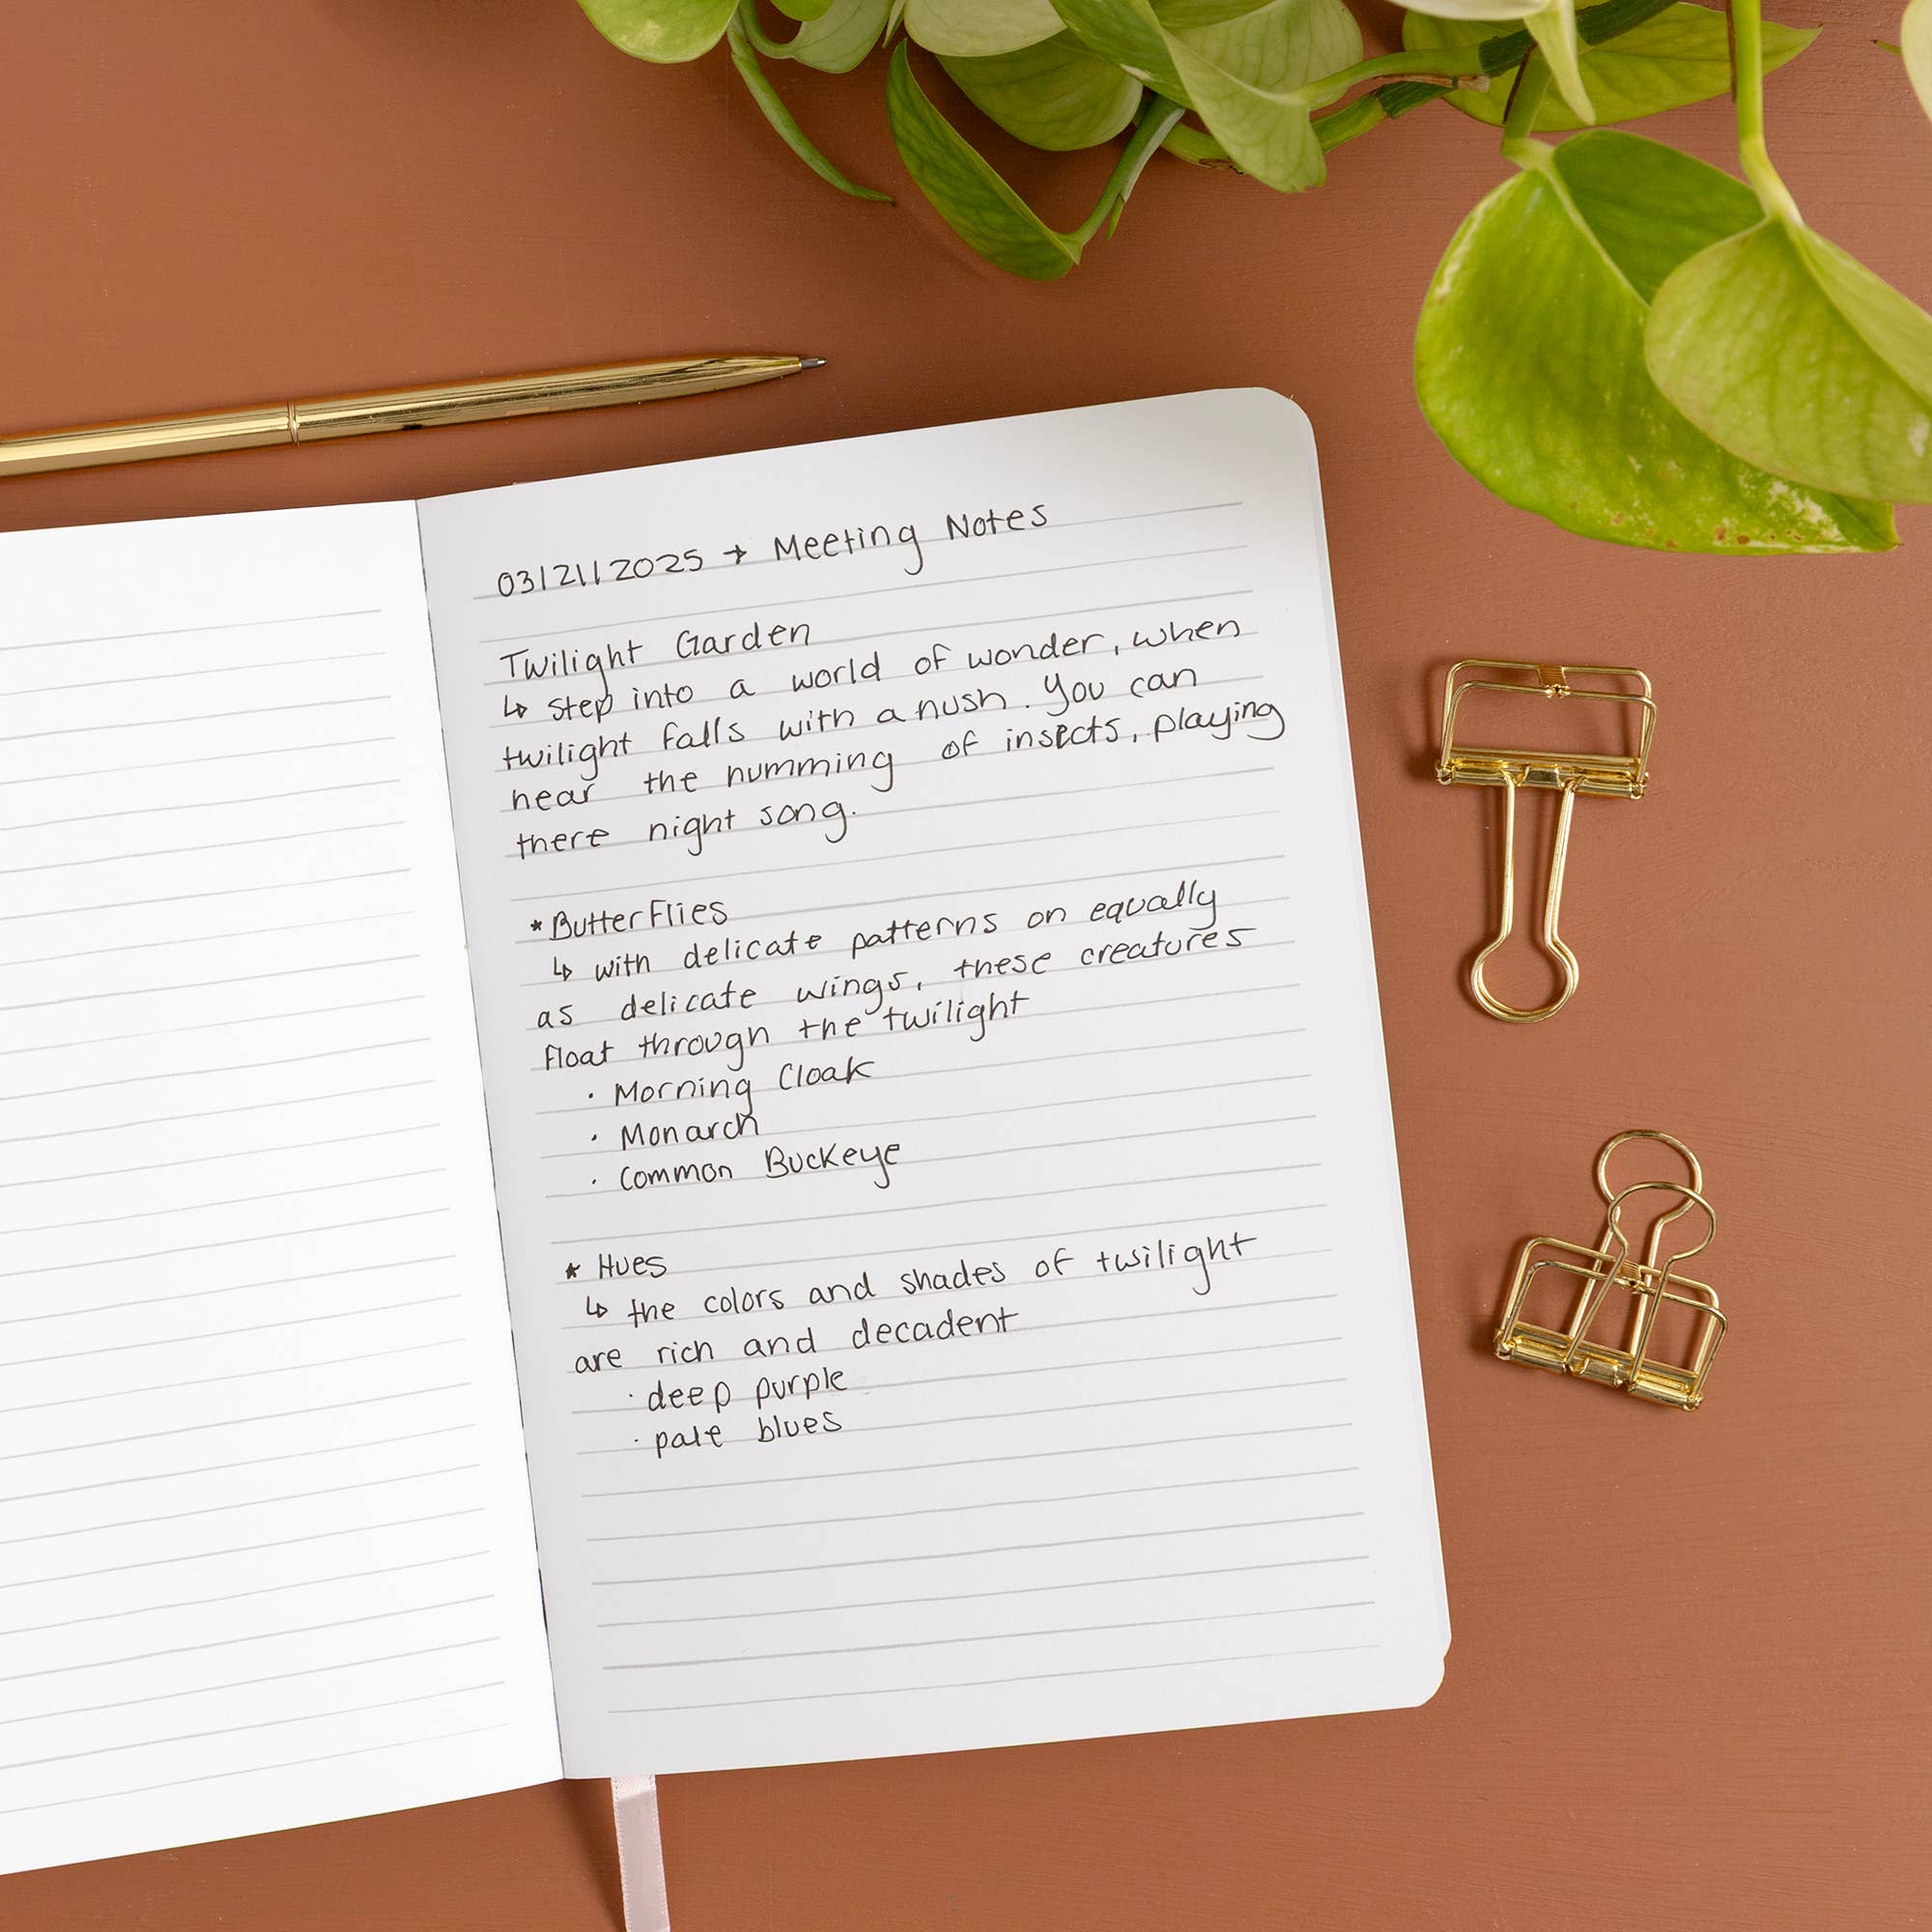 03/21/2025 → Meeting Notes
Twilight Garden
↳ step into a world of wonder, when
twilight falls with a hush. You can
hear the humming of insects, playing
there night song.
*Butterflies
↳ with delicate patterns on equally
as delicate wings, these creatures
float through the twilight
· Morning Cloak
· Monarch
· Common Buckeye
* Hues
↳ the colors and shades of twilight
are rich and decadent
· deep purple
· pale blues